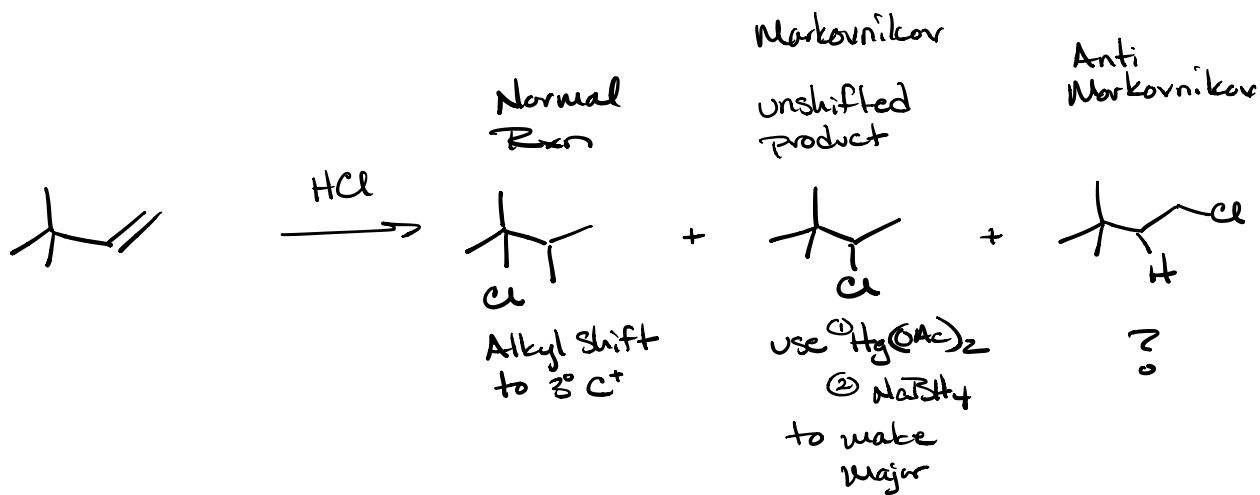 HCl
Normal
Rxn
Cl
Alkyl Shift
to 3° C+
+
Markovnikov
unshifted
product
Cl
use ① Hg(OAc)2
② NaBH4
to make
major
+
Anti
Markovnikov
Cl
H
?